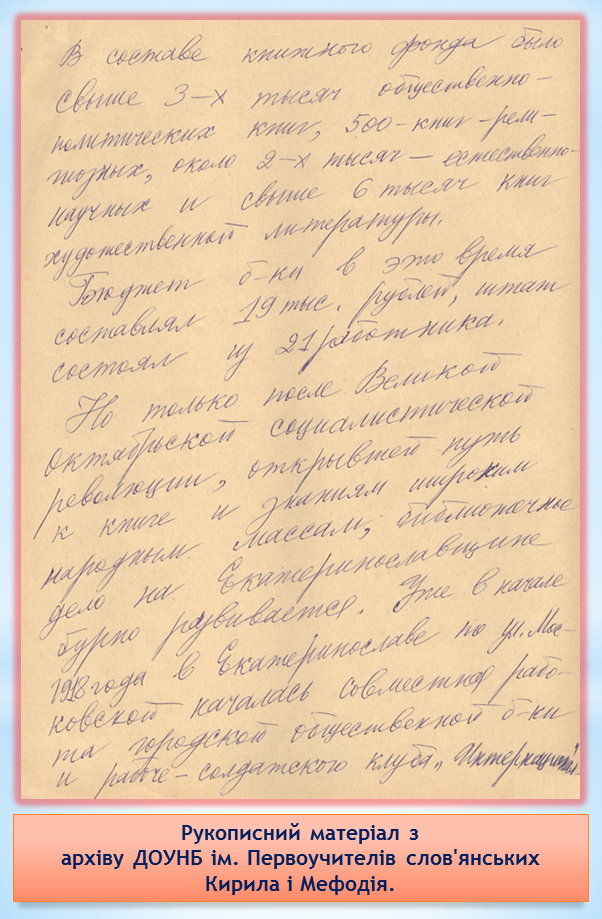 В составе книжного фонда было
свыше 3-х тысяч общественно-
политических книг, 500 - книг - рели-
гиозных, около 2-х тысяч - естественно-
научных и свыше 6 тысяч книг
художественной литературы.
Бюджет б-ки в это время
составлял 19 тыс. рублей, штат
состоял из 21 работника.
Но только после Великой
Октябрьской социалистической
революции, открывшей путь
к книге и знаниям широким
народным массам, библиотечное
дело на Екатеринославщине
бурно развивается. Уже в начале
1918 года в Екатеринославе по ул. Мос-
ковской началась совместная рабо-
та городской общественной б-ки
и рабоче-солдатского клуба „Интернационал"
Рукописний матеріал з
архіву ДОУНБ ім. Первоучителів слов'янських
Кирила і Мефодія.